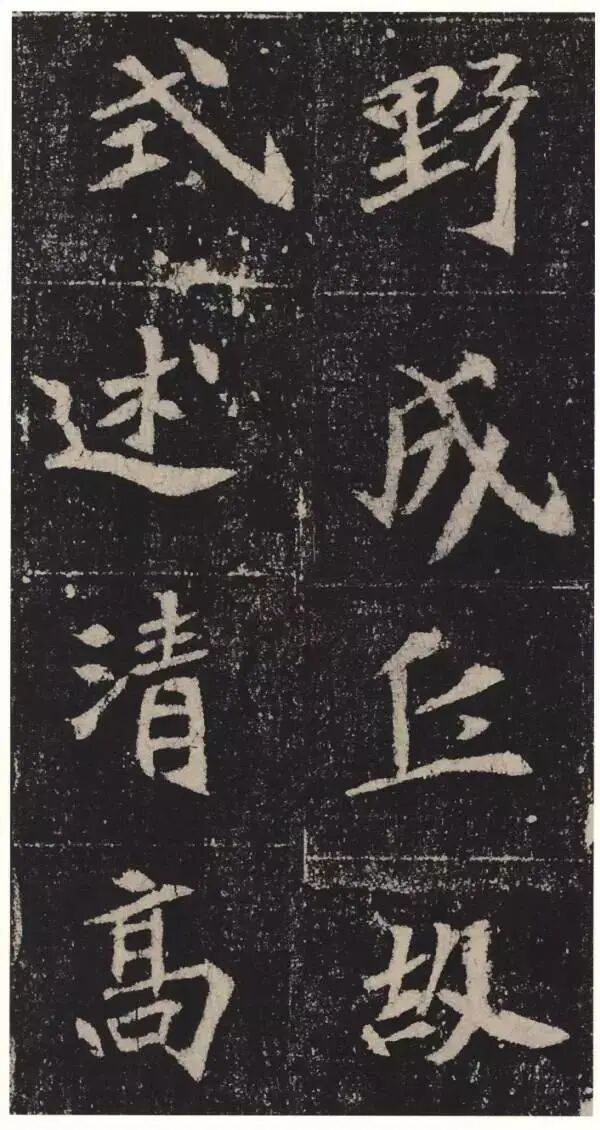 野成丘故
式述清高